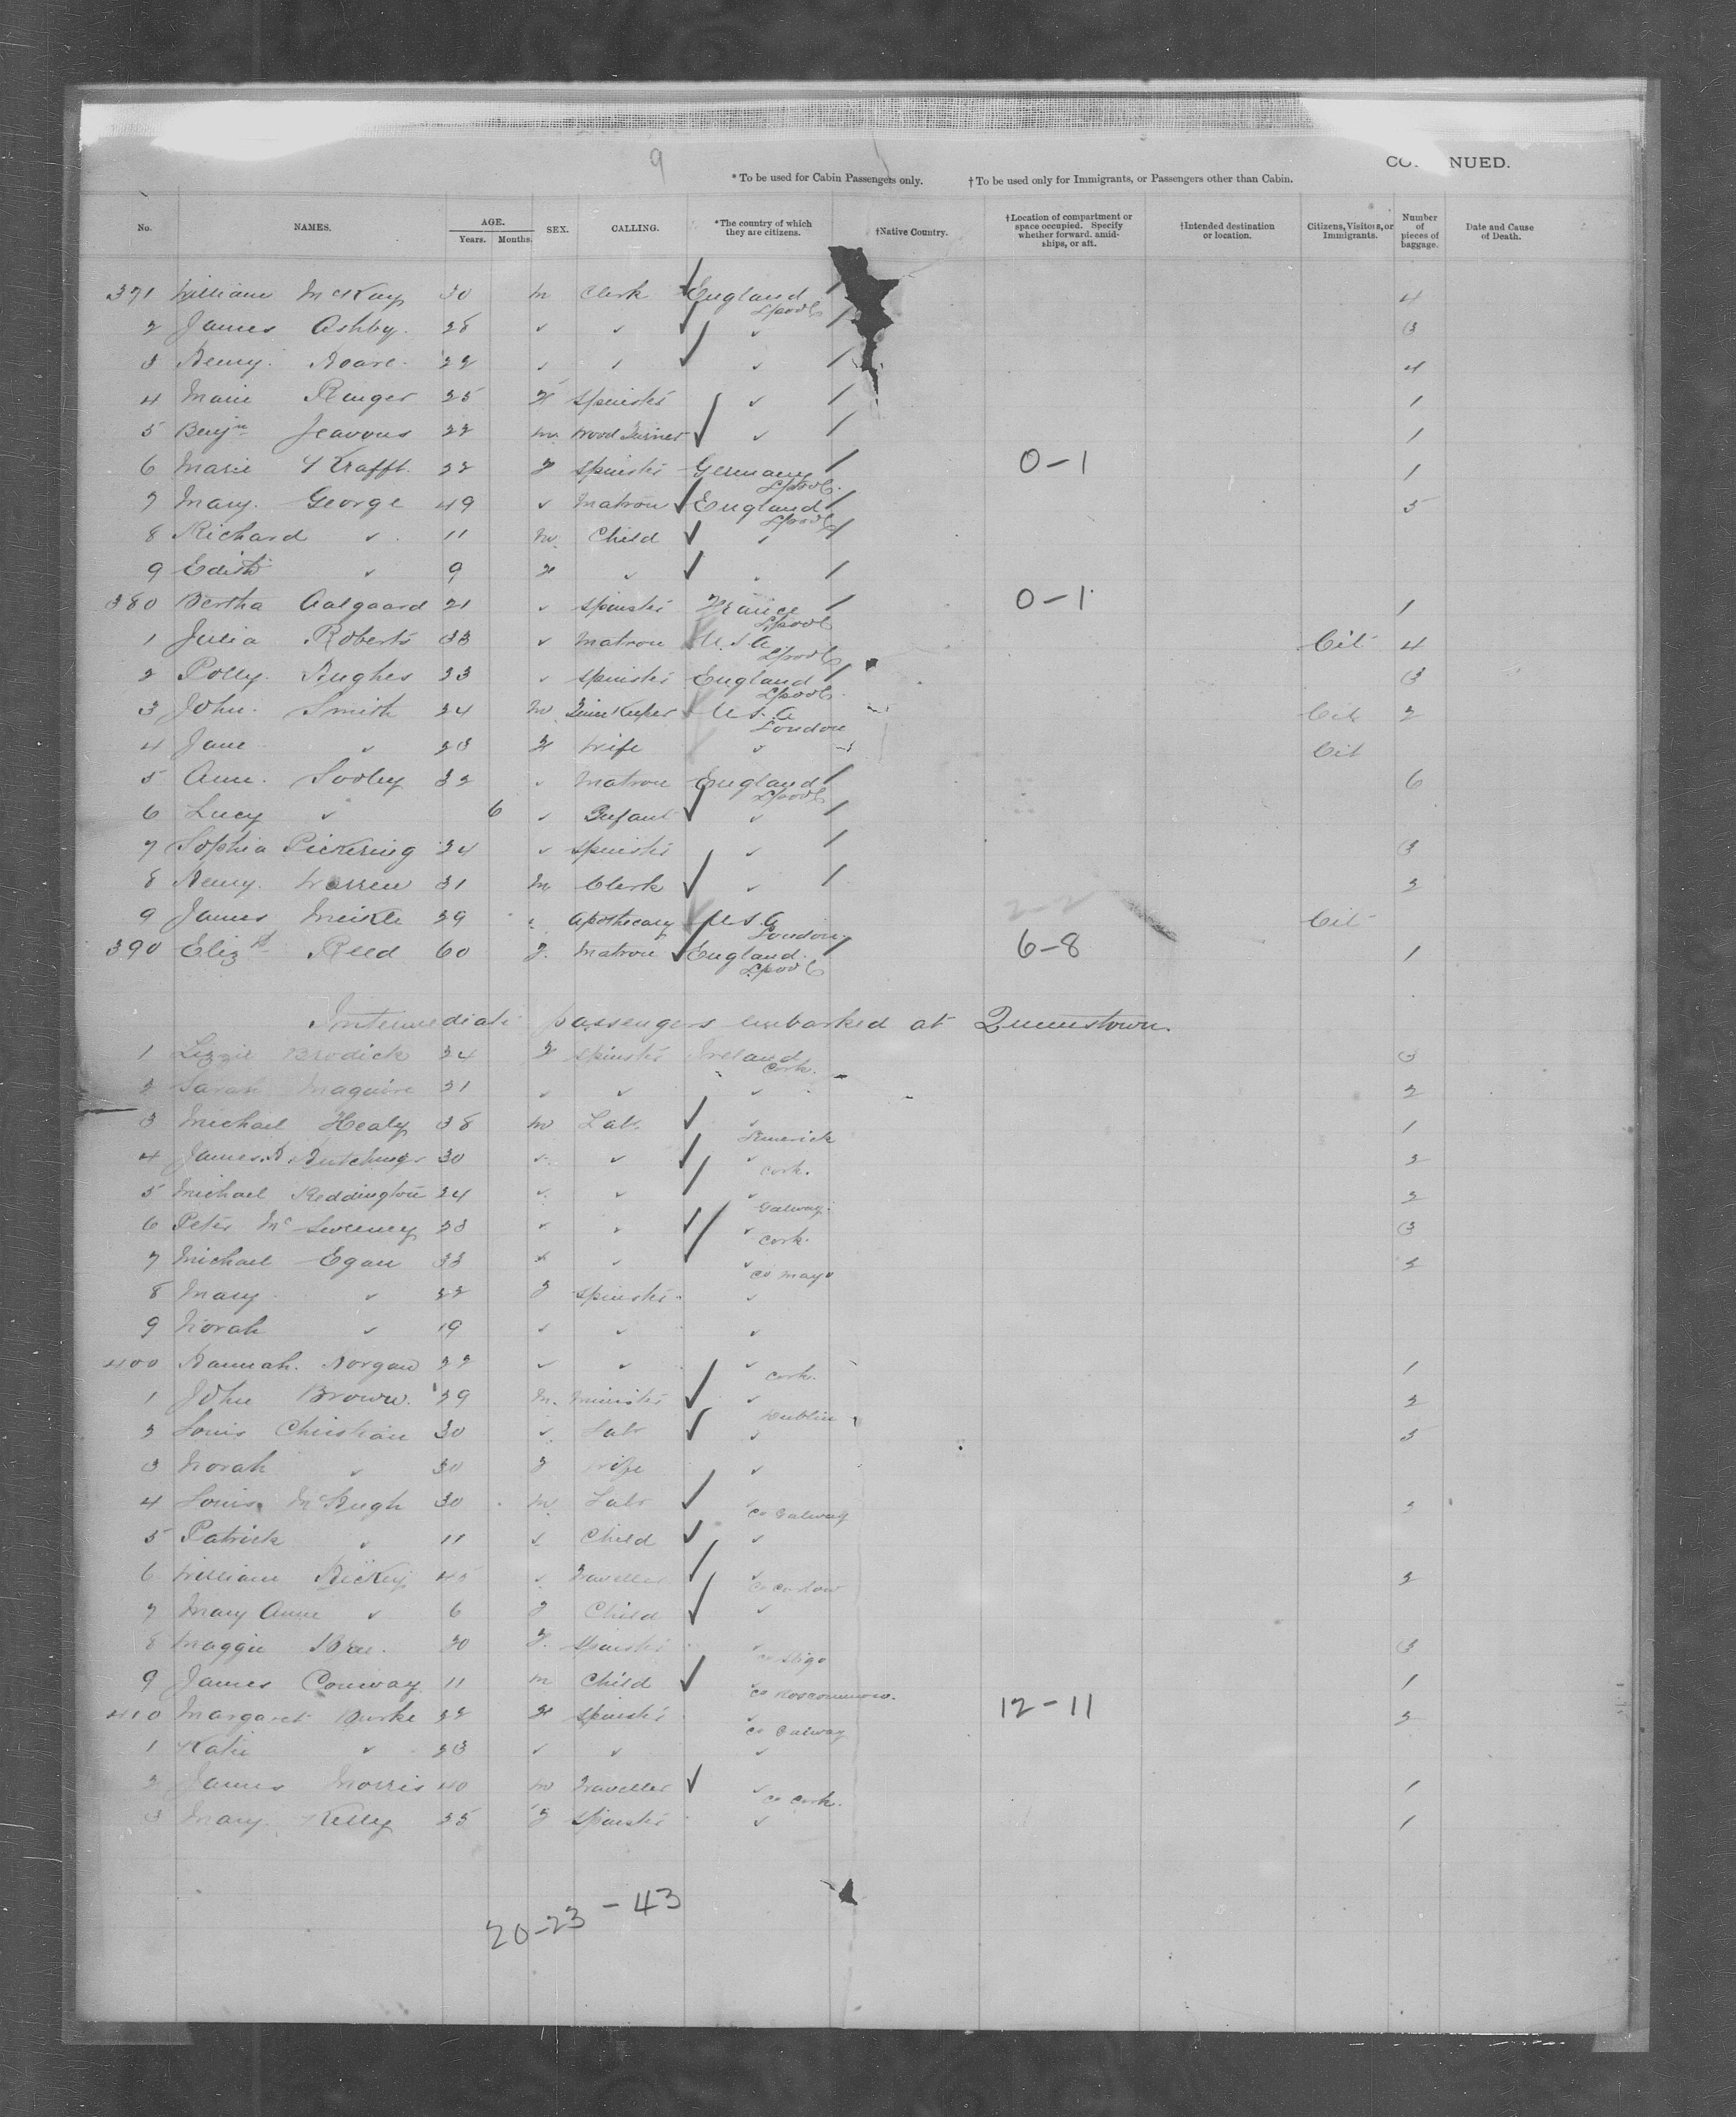 9
CO NUED.
* To be used for Cabin Passengers only. † To be used only for Immigrants, or Passengers other than Cabin.
No. NAMES. AGE. Years. Months. SEX. CALLING. *The country of which they are citizens. †Native Country. †Location of compartment or space occupied. Specify whether forward, amidships, or aft. †Intended destination or location. Citizens, Visitors, or Immigrants. Number of pieces of baggage. Date and Cause of Death.
371 William McKay 30 m Clerk England L'pool 4
2 James Ashby. 28 " " " 3
3 Henry. Hoare. 22 " " " 4
4 Marie Ringer 25 F Spinster " 1
5 Benjn Jeavons 22 m Wood Turner " 1
6 Marie Krafft. 22 F Spinster Germany L'pool. 0-1 1
7 Mary. George 49 " Matron England L'pool 5
8 Richard " 11 m. Child "
9 Edith " 9 F " "
380 Bertha Aalgaard 21 " Spinster France L'pool 0-1 1
1 Julia Roberts 33 " Matron U.S.A. L'pool Cit 4
2 Polly. Hughes 23 " Spinster England L'pool 3
3 John. Smith 24 m Keeper U.S.A London Cit 2
4 Jane " 23 F Wife " Cit
5 Ann. Sooley 32 " Matron England L'pool 6
6 Lucy " 6 " Infant "
7 Sophia Pickering 24 " Spinster " 3
8 Henry. Warren 31 m Clerk " 2
9 James Meikle 29 " Apothecary U.S.A London 2-2 Cit
390 Elizth Reed 60 F. Matron England. L'pool 6-8 1
Intermediate passengers embarked at Queenstown.
1 Lizzie Brodick 24 F Spinster Ireland Cork. 3
2 Sarah Maguire 21 " " " 2
3 Michael Healy 38 m Labr " Limerick 1
4 James. H. Hutchings 30 " " " Cork. 2
5 Michael Reddington 24 " " " Galway. 2
6 Peter McSweeney 23 " " " Cork. 3
7 Michael Egan 33 " " " Co Mayo 2
8 Mary " 22 F Spinster "
9 Norah " 19 " " "
400 Hannah. Horgan 22 " " " Cork. 1
1 John Brown. 29 m. Minister " Dublin 2
2 Louis Christian 30 " Labr " 5
3 Norah " 30 F Wife "
4 Louis McHugh 30 m Labr " Co Galway 2
5 Patrick " 11 " Child "
6 William Hickey 45 " Traveller " Co Carlow 2
7 Mary Anne " 6 F Child "
8 Maggie 20 F. Spinster " Co Sligo 3
9 James Conway 11 m Child " Co Roscommon. 1
410 Margaret Burke 22 F Spinster " Co Galway 12-11 2
1 Katie " 23 " " "
2 James Morris 40 m Traveller " Co Cork. 1
3 Mary. Kelly 25 F Spinster " 1
20-23-43